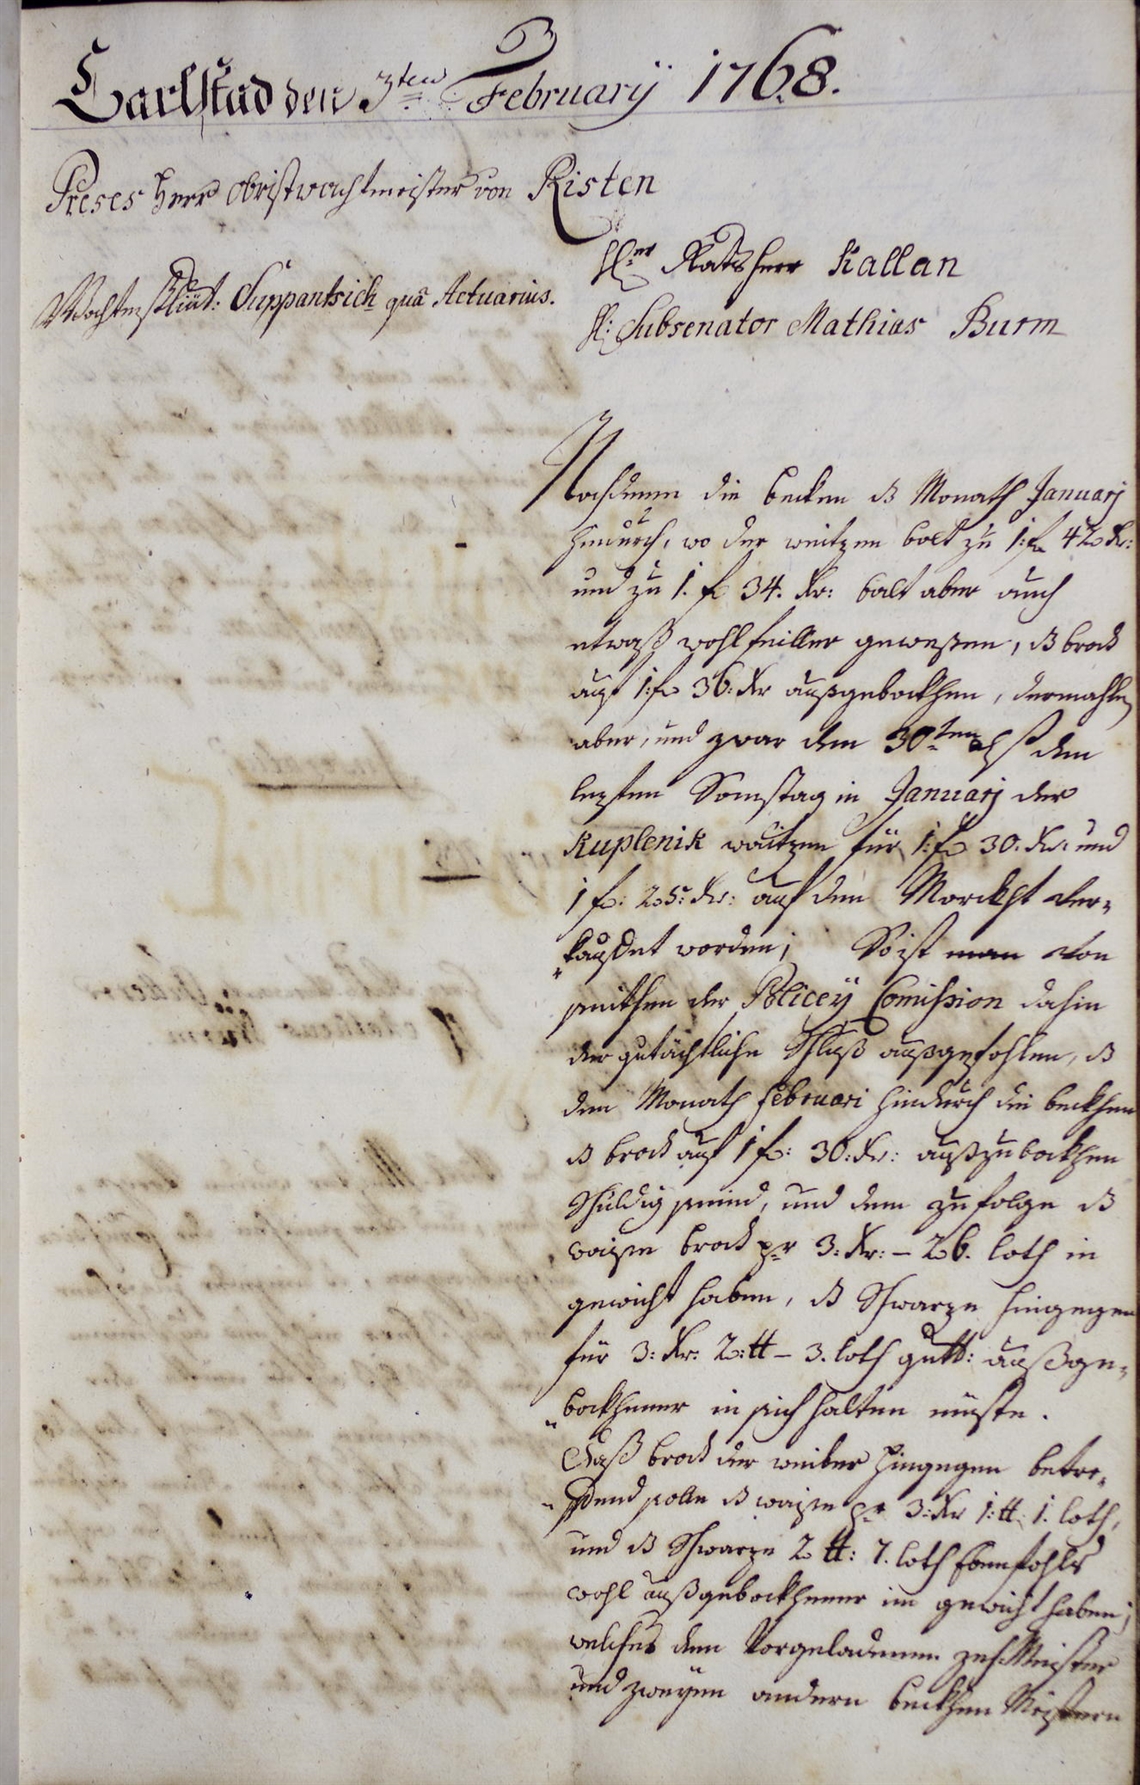 Carlstad den 3ten Februarij 1768.
Preses Herr Obristwachtmeister von Risten
Her Rathsherr Kallan
Wachtmstlieut: Suppantsich quâ Actuarius.
H: Subsenator Mathias Burm
Nachdeme die becken dß Monath Januarj
hindurch, wo der weitzen balt zu 1: f 42 Kr:
und zu 1. f 34. Kr: balt aber auch
etwaß wohlfeiller geweßen, dß brod
auf 1: f 36: Kr außgebackhen, dermahlen
aber, und zwar den 30ten alß den
lezten Samstag in Januarj der
Kuplenik waitzen für 1: f 30. Kr: und
1 f: 25: Kr: auf den Marckht ver-
kauffet worden; So ist man von
seithen der Policeÿ Comission dahin
der gutächtliche Schluß außgefohlen, dß
den Monath Februari hindurch die beckhen
dß brod auf 1 f: 30: Kr: außzubackhen
schuldig seind, und dem zu folge dß
waisse brod pr 3: Kr: – 26. loth in
gewicht haben, dß Schwarze hingegen
für 3: Kr: 2: tt – 3. loth gutt: außge-
backhener in sich halten müste.
Daß brod der weiber hingegen betre-
ffend solle dß waisse pr 3: Kr 1: tt: 1. loth,
und dß Schwarze 2 tt: 7. loth Ebenfohls
wohl außgebackhener im gewicht haben;
welches dem Vorgeladenen zech Meister
und zweÿen andern beckhen Meistern